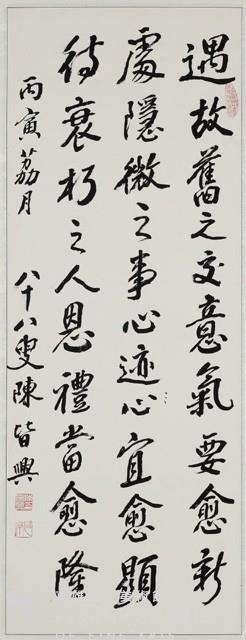 遇故舊之交意氣要愈新
處隱微之事心迹心宜愈顯
待衰朽之人恩禮當愈隆
丙寅荔月 八十八叟陳皆興